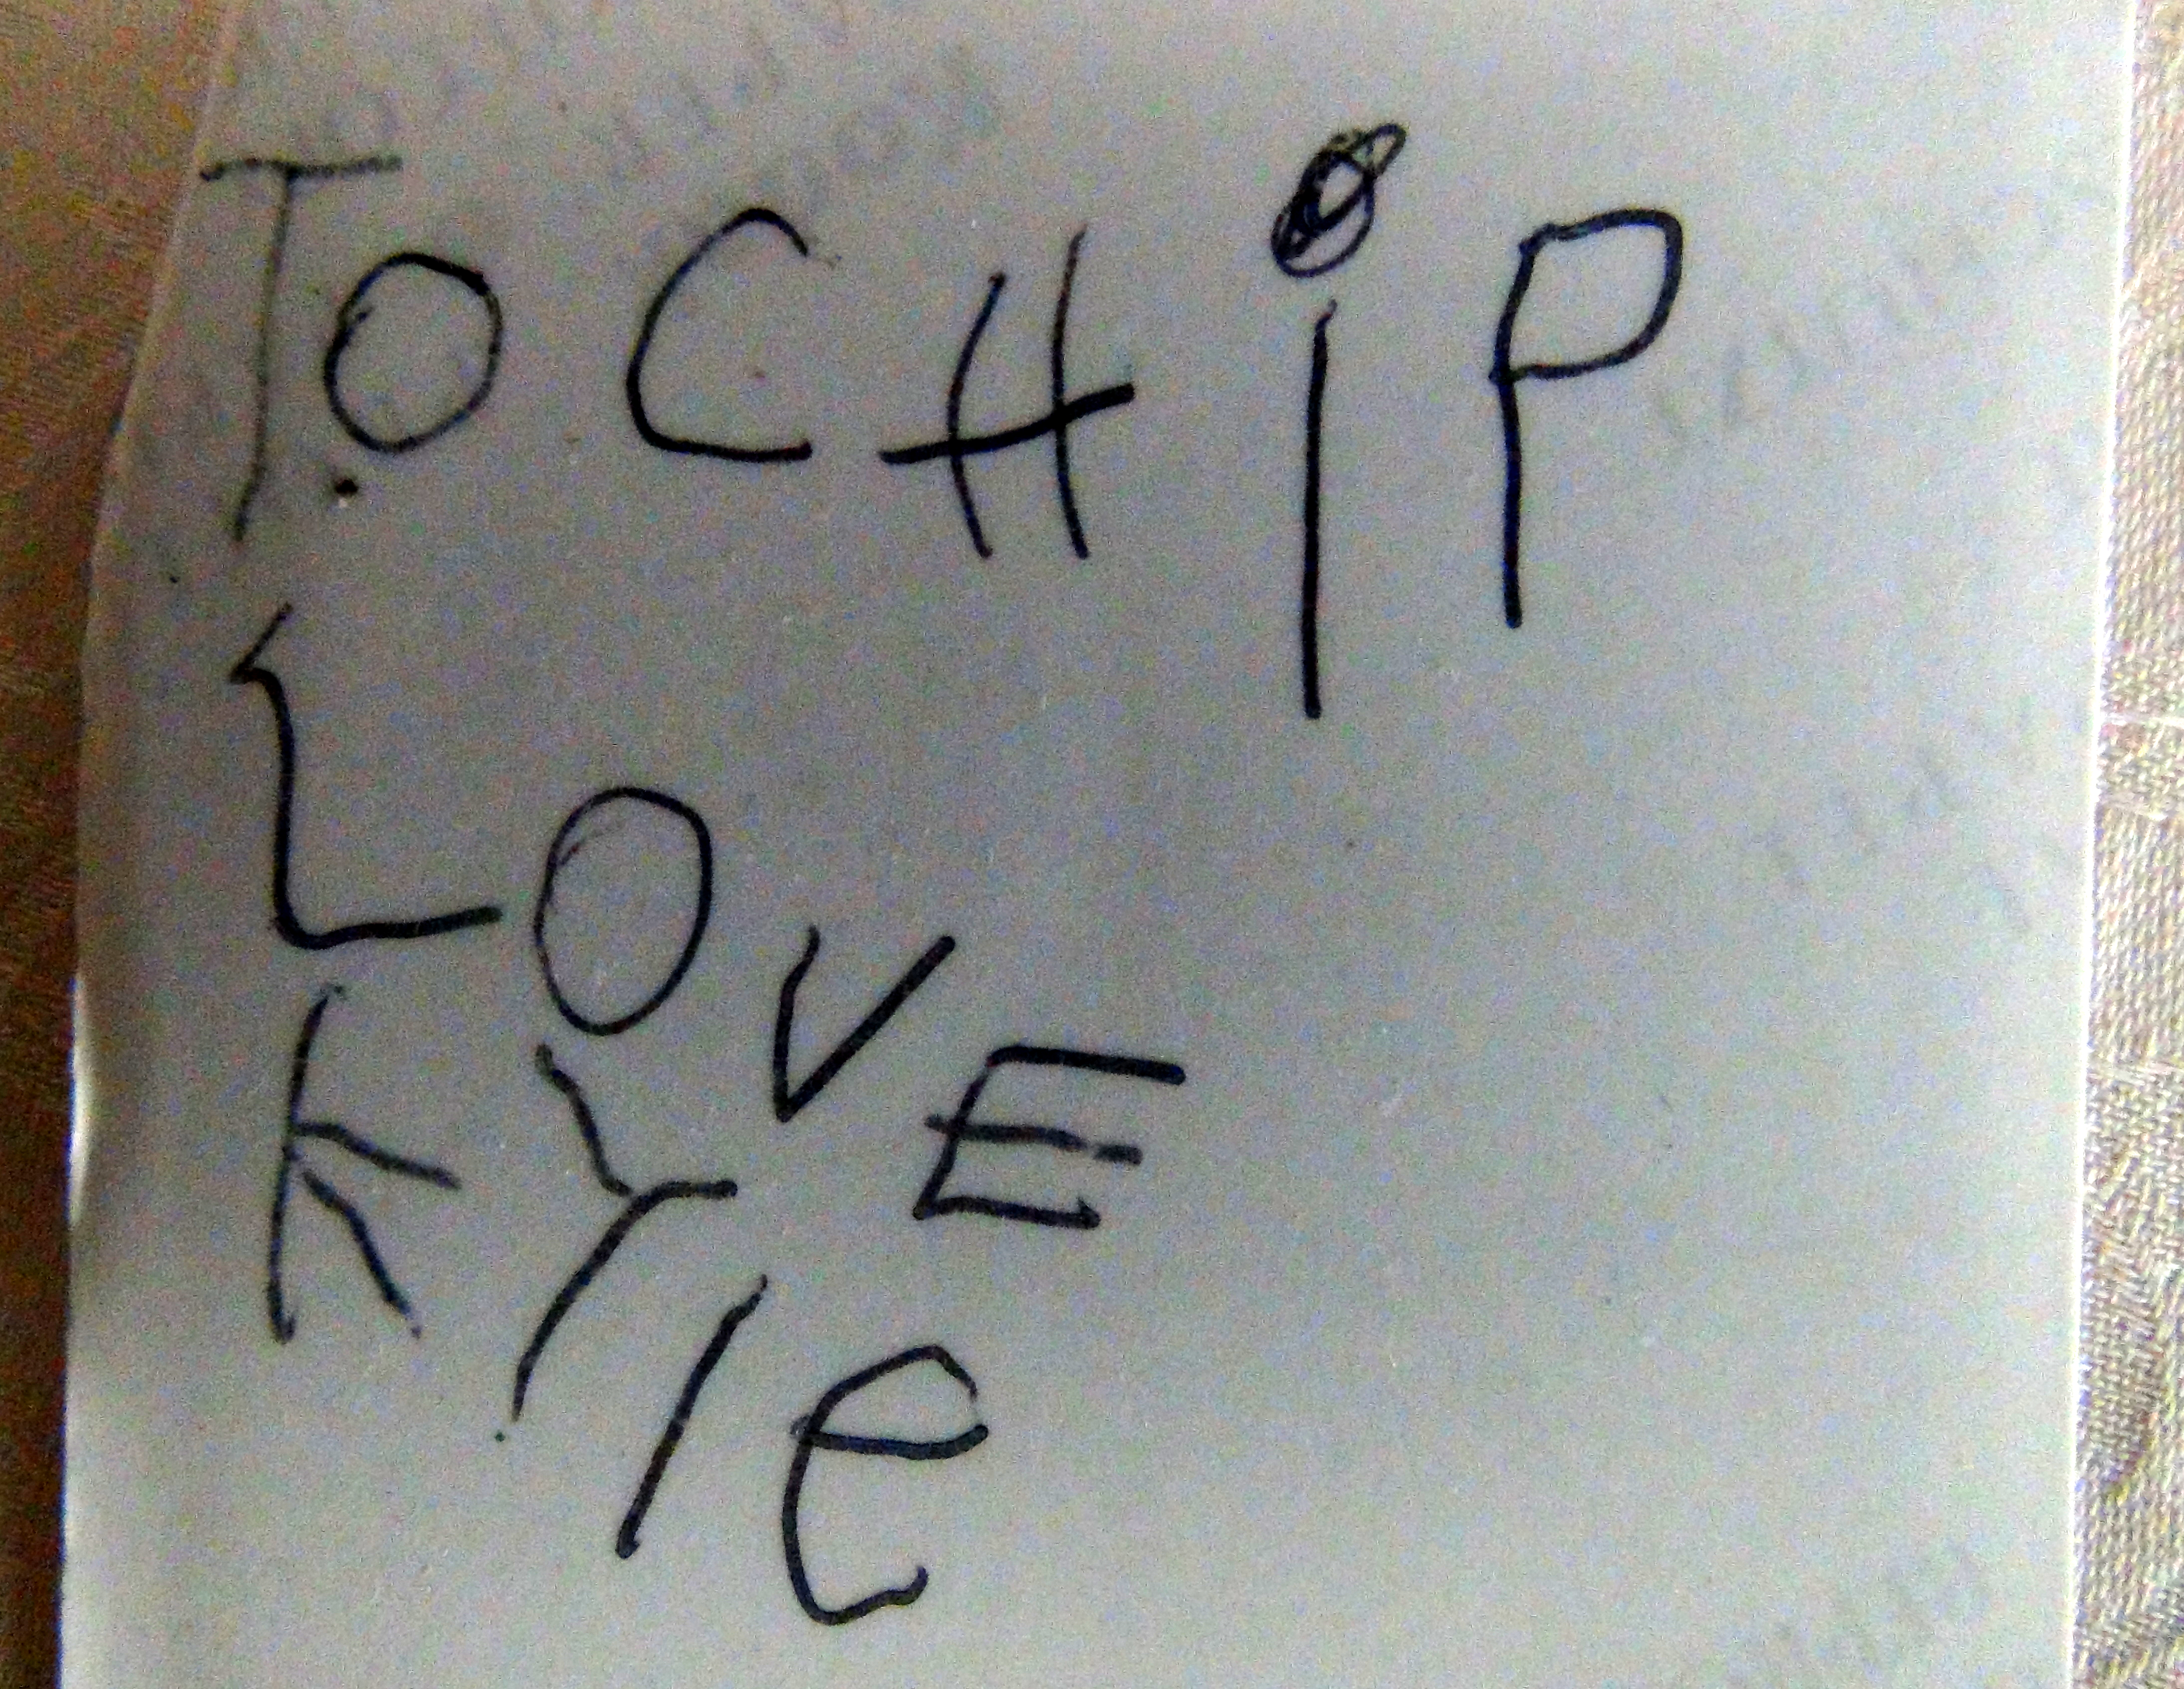 To CHiP
LOVE
KYle